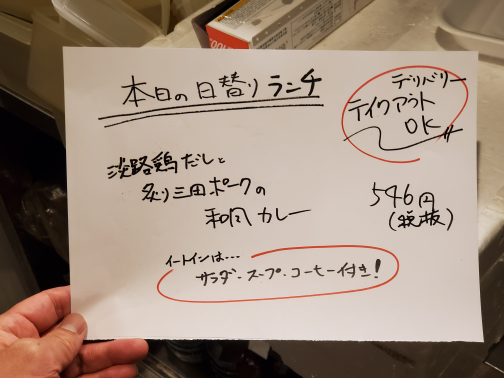 本日の日替りランチ
デリバリー
テイクアウト
OK
淡路鶏だしと
炙り三田ポークの
和風カレー
546円
(税抜)
イートインは...
サラダ・スープ・コーヒー付き!
100